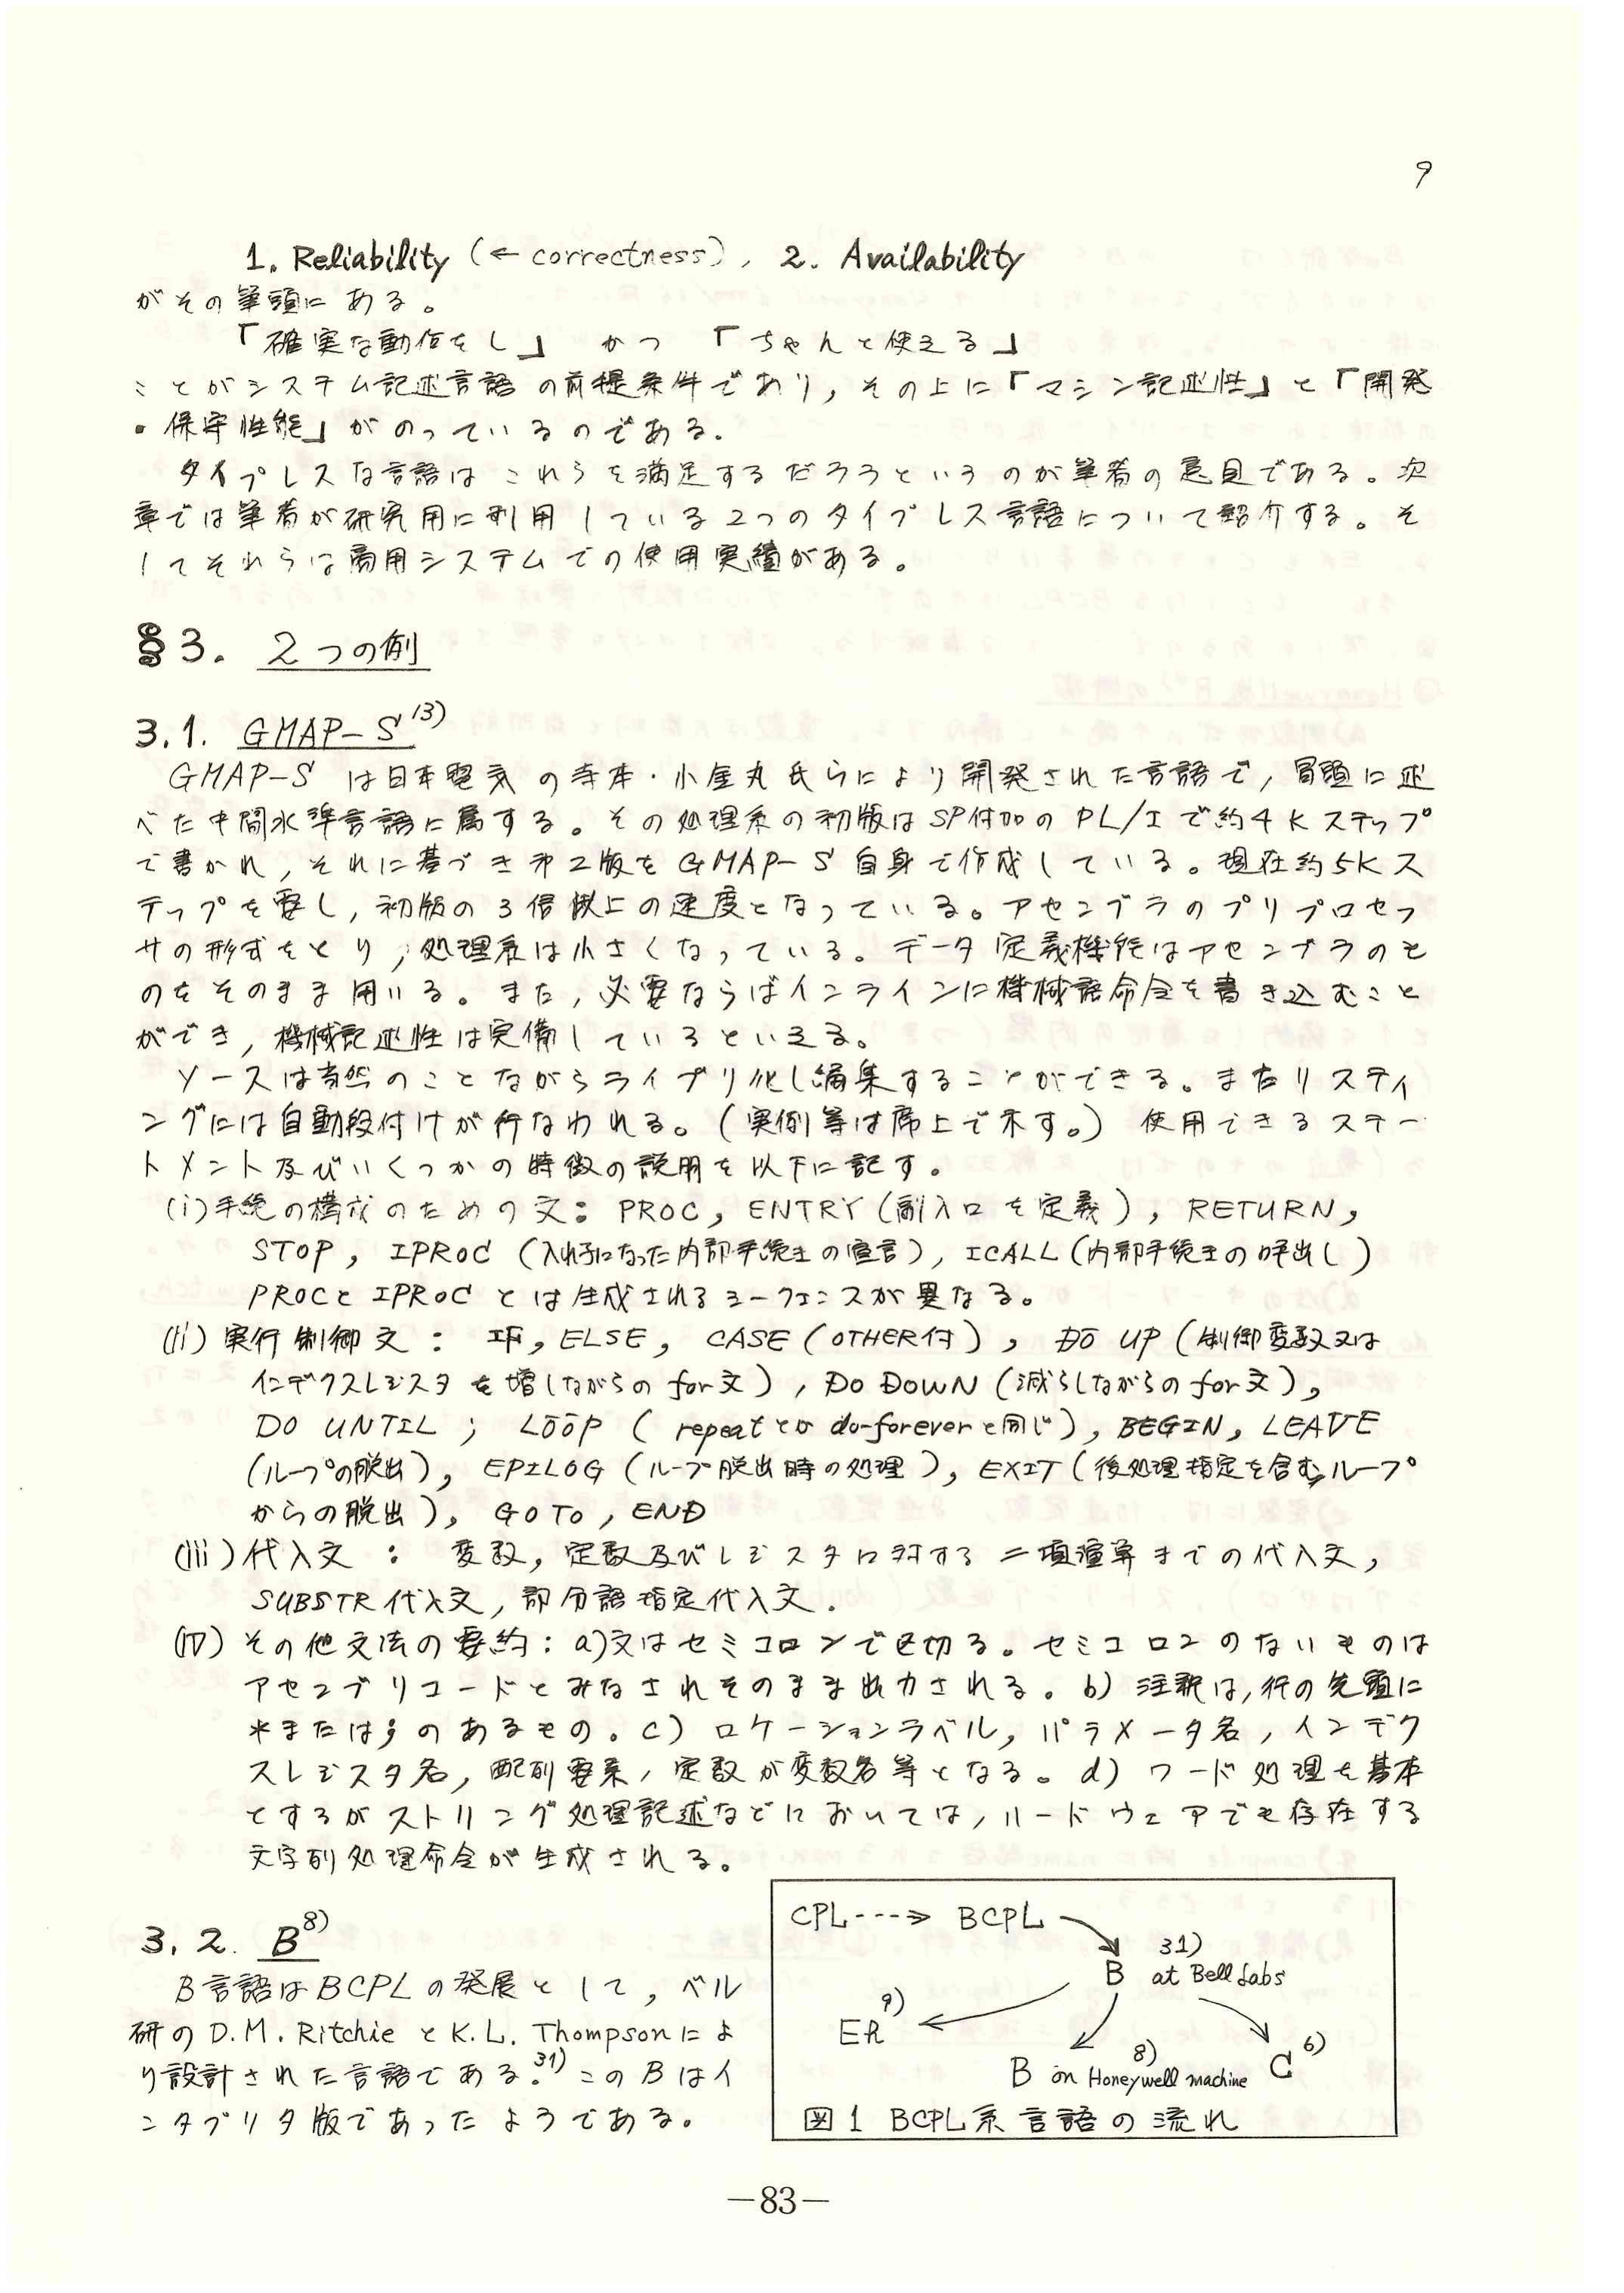 9
1. Reliability (← correctness), 2. Availability
がその筆頭にある。
「確実な動作をし」 かつ 「ちゃんと使える」
ことがシステム記述言語の前提条件であり, その上に「マシン記述性」と「開発
・保守性能」がのっているのである.
タイプレスな言語はこれらを満足するだろうというのが筆者の意見である。次
章では筆者が研究用に利用している2つのタイプレス言語について紹介する。そ
してそれらは商用システムでの使用実績がある。
§3. 2つの例
3.1. GMAP-S 13)
GMAP-S は日本電気の寺本・小金丸氏らにより開発された言語で, 冒頭に述
べた中間水準言語に属する。その処理系の初版はSP付加のPL/Iで約4Kステップ
で書かれ, それに基づき第2版をGMAP-S自身で作成している。現在約5Kス
テップを要し, 初版の3倍以上の速度となっている。アセンブラのプリプロセッ
サの形式をとり, 処理系は小さくなっている。データ定義機能はアセンブラのも
のをそのまま用いる。また, 必要ならばインラインに機械語命令を書き込むこと
ができ, 機械記述性は完備しているといえる。
ソースは当然のことながらライブリ化し編集することができる。またリスティ
ングには自動段付けが行なわれる。(実例等は席上で示す。) 使用できるステー
トメント及びいくつかの特徴の説明を以下に記す。
(i) 手続の構成のための文: PROC, ENTRY (副入口を定義), RETURN,
STOP, IPROC (入れ子になった内部手続きの宣言), ICALL (内部手続きの呼出し)
PROCとIPROCとは生成されるシークェンスが異なる。
(ii) 実行制御文 : IF, ELSE, CASE (OTHER付), DO UP (制御変数又は
インデクスレジスタを増しながらのfor文), DO DOWN (減らしながらのfor文),
DO UNTIL ; LOOP ( repeatとかdo-foreverと同じ), BEGIN, LEAVE
(ループの脱出), EPILOG (ループ脱出時の処理), EXIT (後処理指定を含むループ
からの脱出), GOTO, END
(iii) 代入文 : 変数, 定数及びレジスタに対する二項演算までの代入文,
SUBSTR代入文, 部分語指定代入文.
(iv) その他文法の要約: a)文はセミコロンで区切る。セミコロンのないものは
アセンブリコードとみなされそのまま出力される。b) 注釈は, 行の先頭に
*または;のあるもの。c) ロケーションラベル, パラメータ名, インデク
スレジスタ名, 配列要素, 定数が変数名等となる。d) ワード処理を基本
とするがストリング処理記述などにおいては, ハードウェアでも存在する
文字列処理命令が生成される。
3.2. B 8)
B言語はBCPLの発展として, ベル
研のD.M. RitchieとK.L. Thompsonによ
り設計された言語である.31) このBはイ
ンタプリタ版であったようである。
CPL ---> BCPL
B 31) at Bell Labs
Eh 9)
B 8) on Honeywell machine
C 6)
図1 BCPL系言語の流れ
—83—